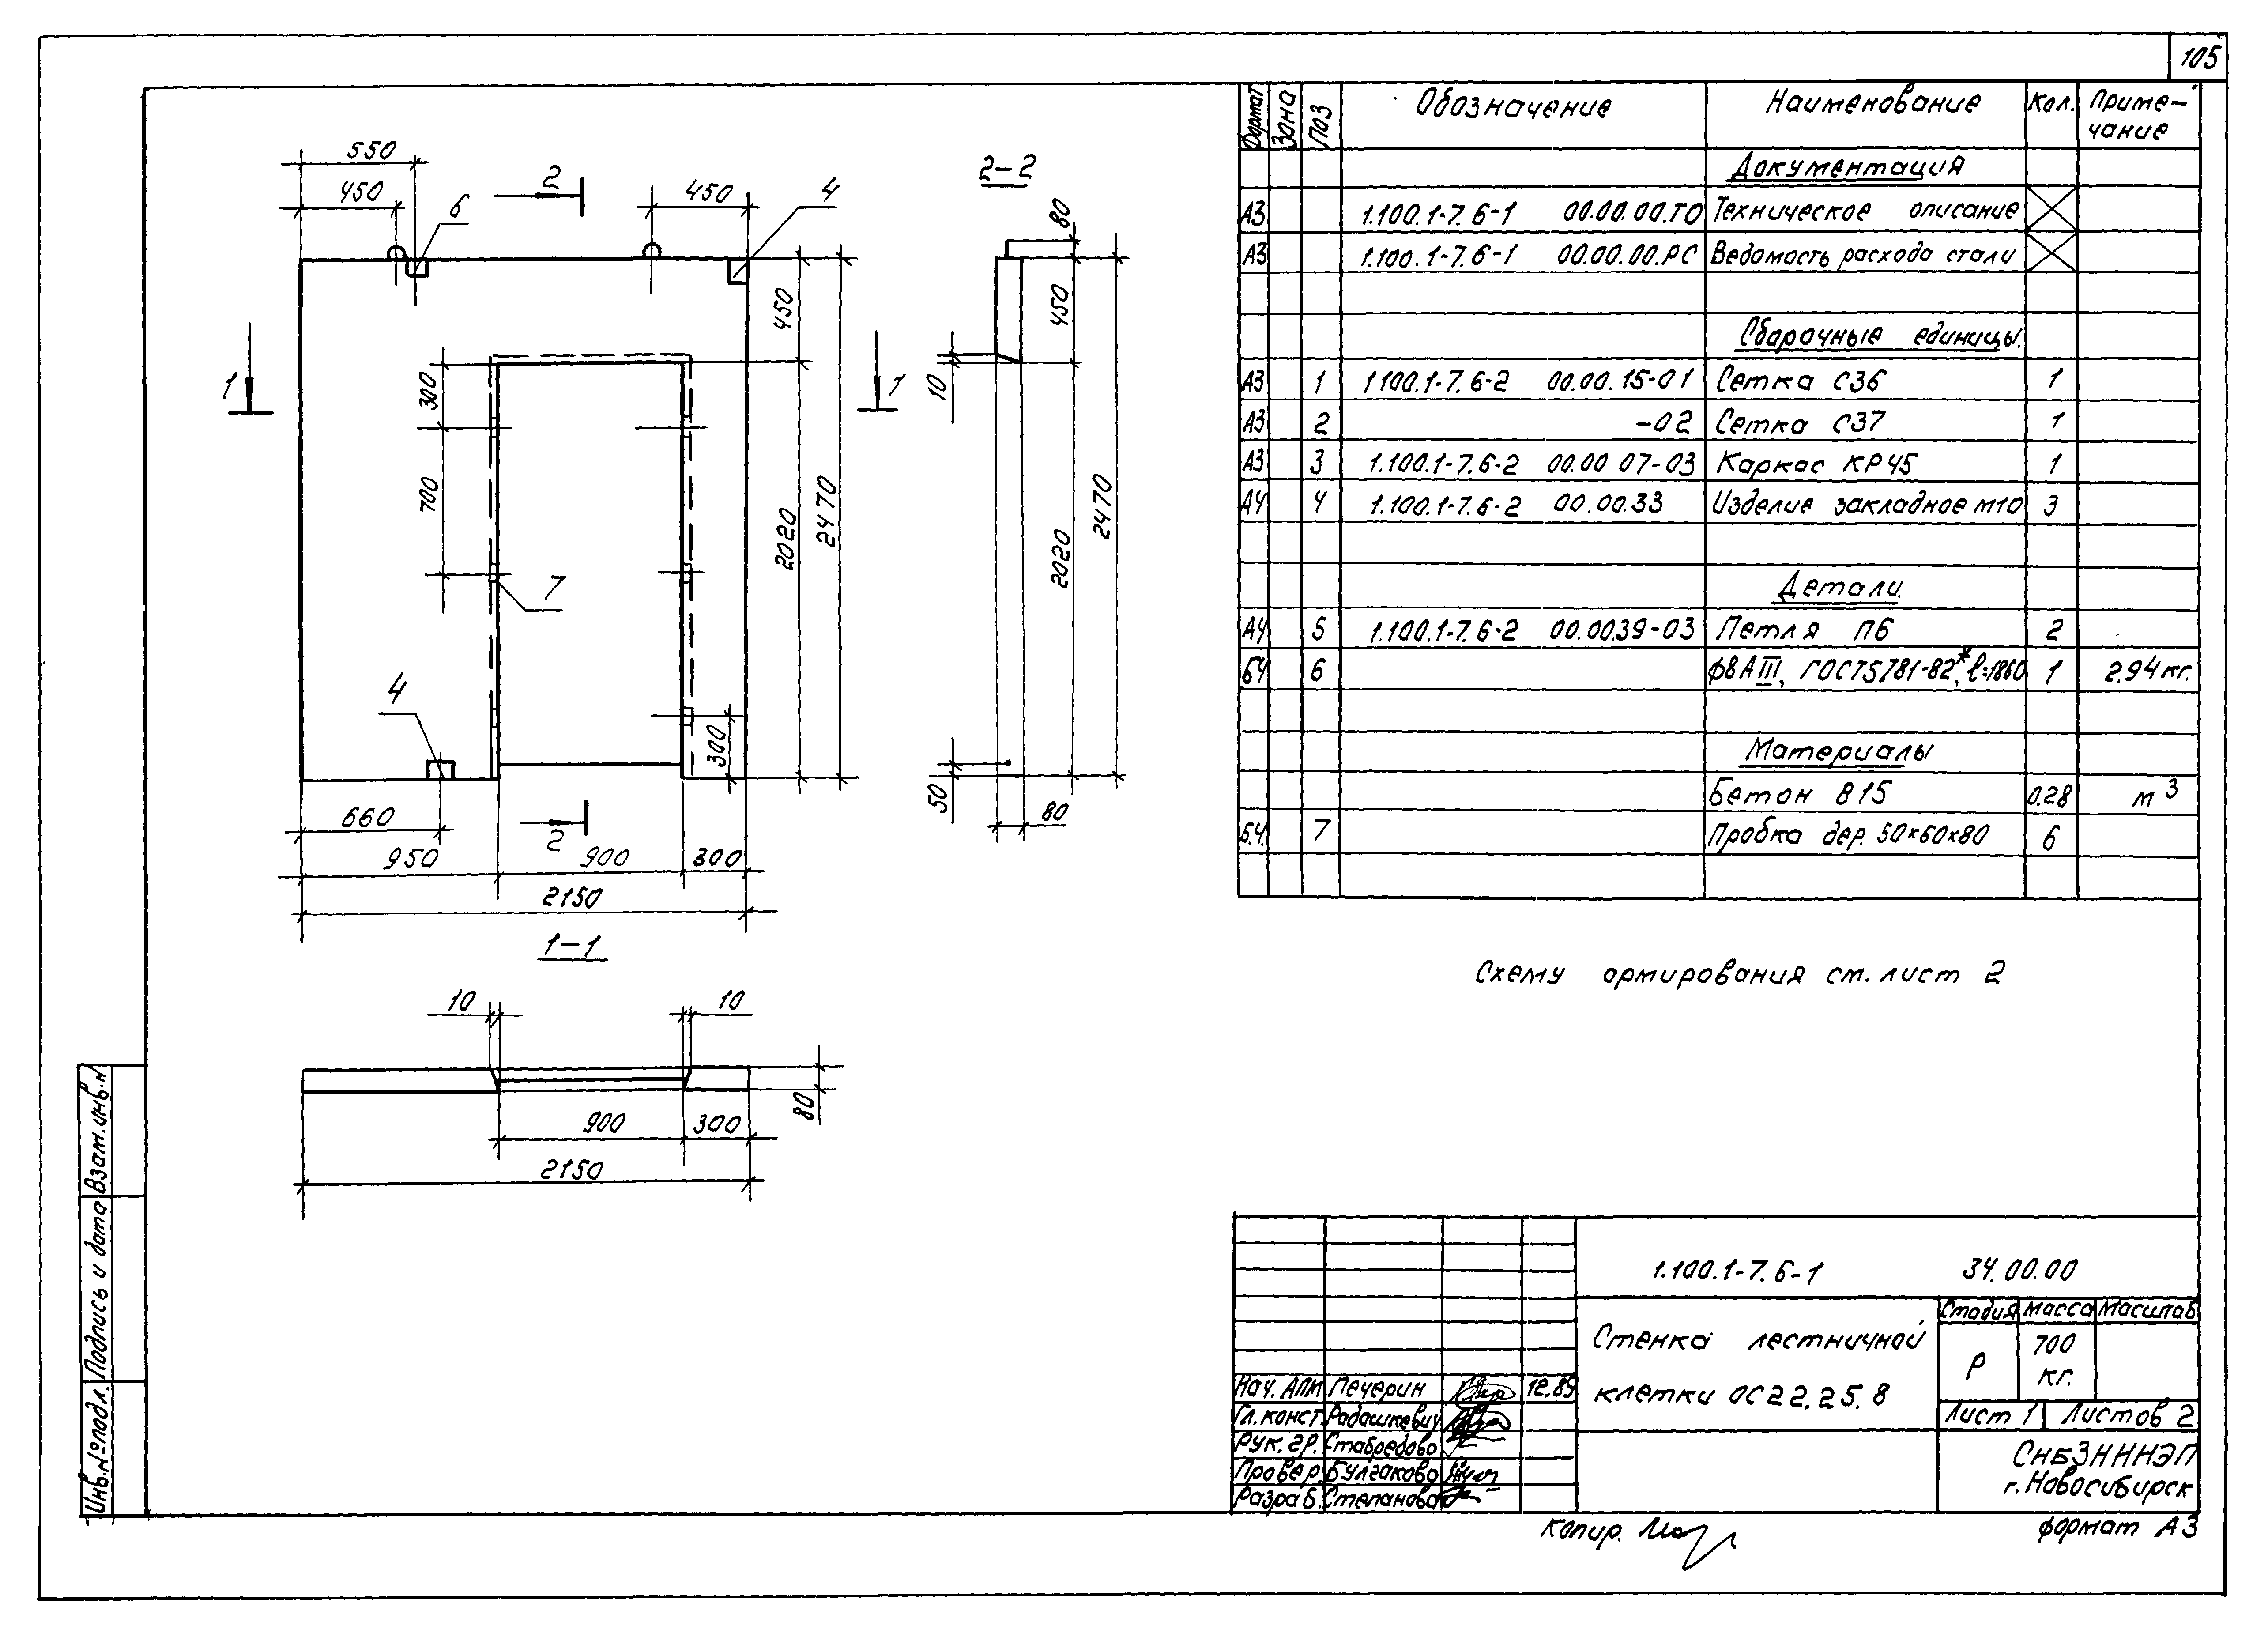 105
550
450
6
2
450
4
2-2
80
450
1
1
300
700
2020
2470
7
10
450
2020
2470
4
300
50
80
660
2
950
900
300
2150
1-1
10
10
80
900
300
2150
Формат Зона Поз Обозначение Наименование Кол. Приме-
чание
Документация
А3 1.100.1-7.6-1 00.00.00.ТО Техническое описание
А3 1.100.1-7.6-1 00.00.00.РС Ведомость расхода стали
Сборочные единицы.
А3 1 1100.1-7.6-2 00.00.15-01 Сетка С36 1
А3 2 -02 Сетка С37 1
А3 3 1.100.1-7.6-2 00.00 07-03 Каркас КР45 1
А4 4 1.100.1-7.6-2 00.00.33 Изделие закладное м10 3
Детали.
А4 5 1.100.1-7.6-2 00.0039-03 Петля П6 2
БЧ 6 ф8АIII, ГОСТ5781-82*, ℓ=1860 1 2.94кг.
Материалы
Бетон В15 0.28 м³
Б.Ч. 7 Пробка дер. 50×60×80 6
Схему армирования см. лист 2
1.100.1-7.6-1 34.00.00
Стенка лестничной
клетки ОС22.25.8
Стадия Масса Масштаб
Р 700
кг.
Лист 1 Листов 2
г. Новосибирск
Нач. АПМ Печерин 12.89
Гл. конст. Радашкевич
Рук. гр.
Провер. Булгакова
Разраб. Степанова
Копир.
формат А3
Инв.№подл. Подпись и дата Взам.инв.н